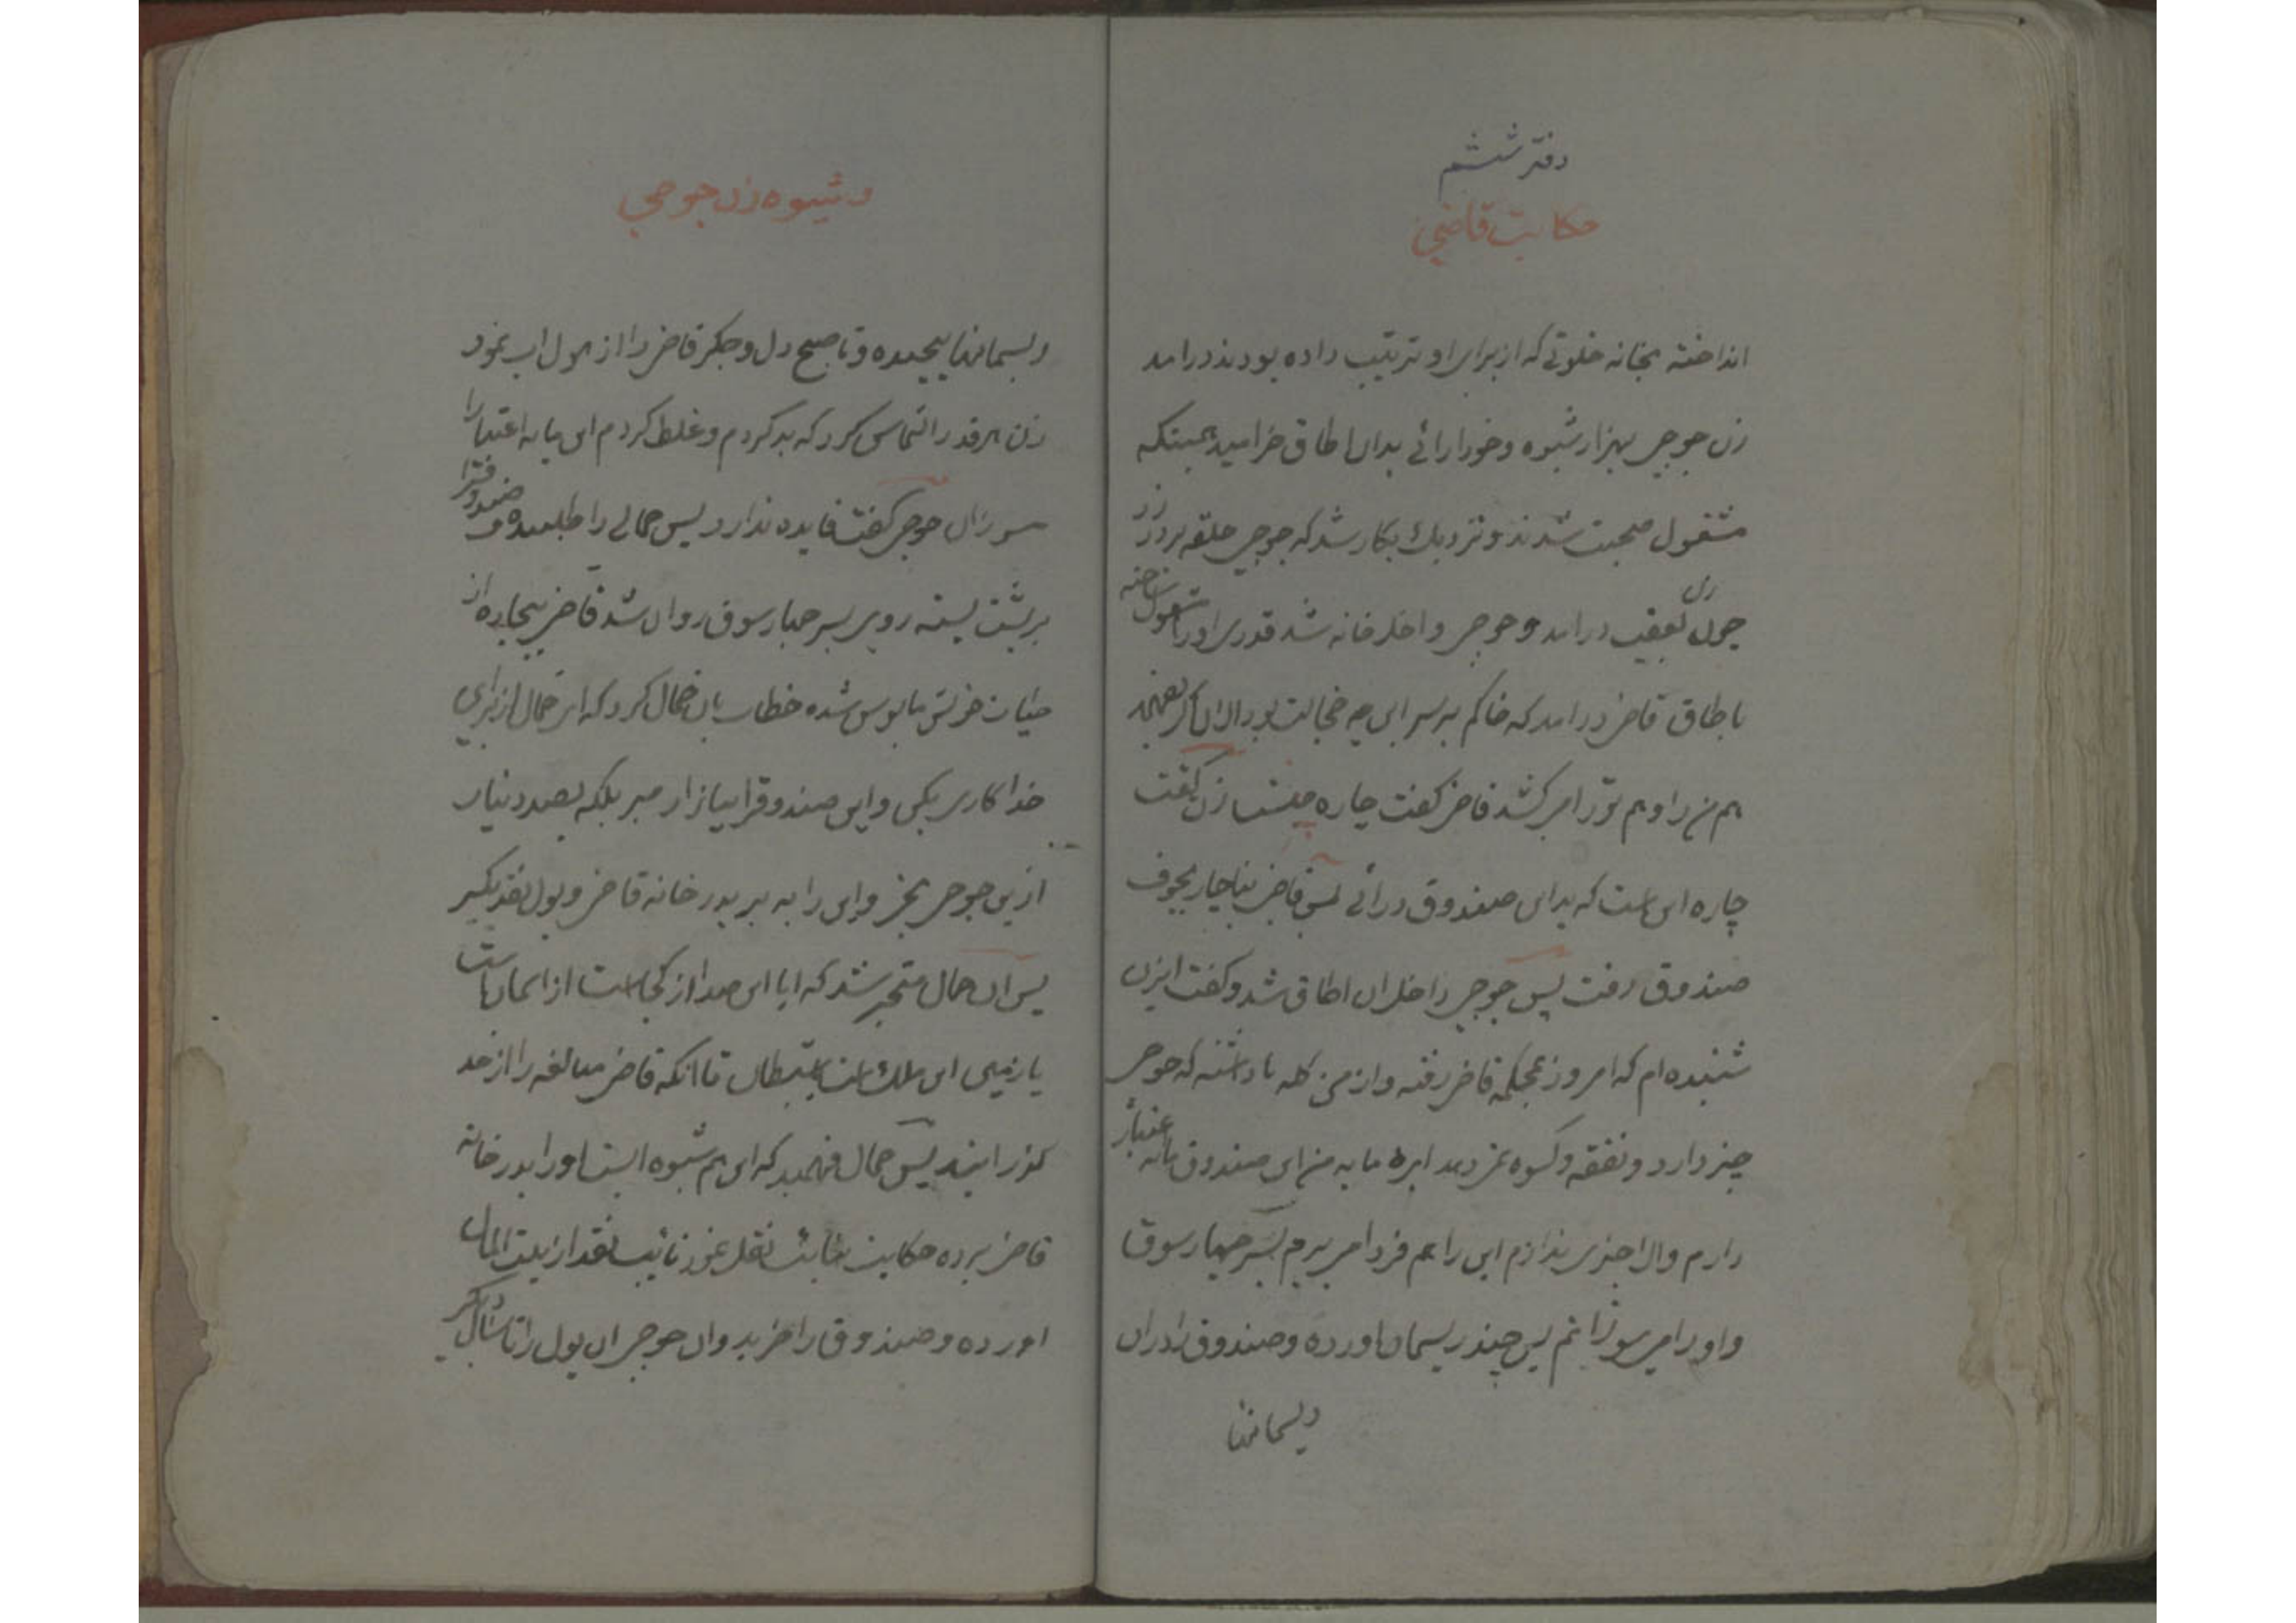 دفتر ششم
حکایت قاضی
انداخته بخانه خلوتی که از برای او ترتیب داده بودند درامد
زن جوحی بهزار شیوه و خودارائی بدان اطاق خرامید همینکه
مشغول صحبت شدند و نزدیك بکار شد که جوحی حلقه بر در زد
چون زن بعقب در امد و جوحی داخل خانه شد قدری او را مشغول ساخته
باطاق قاضی درامد که خاکم بر سر این چه خجالت بود الان اگر بفهمد
هم من را و هم تو را میکشد قاضی گفت چاره چیست زن گفت
چاره این است که بدای صندوق درائی پس قاضی بناچار بجوف
صندوق رفت پس جوحی داخل ان اطاق شد و گفت ایزن
شنیده ام که امروز بمحکمه قاضی رفته و از من گله ها داشته که جوحی
چیز دارد و نفقه و کسوه نمیدهد ایره ما به من این صندوق مایه اعتبار
دارم والا چیزی ندارم این را هم فردا میبرم بسر چهار سوق
و او را میسوزانم پس چند ریسمان اورده و صندوق را دران
ریسمانها
و شیوه زن جوحی
ریسمانها پیچیده و تا صبح دل و جگر قاضی را از هول اب نمود
زن هرقدر التماس کرد که بد کردم و غلط کردم این مایه اعتبار را
مسوزان جوحی گفت فایده ندارد پس حمالی را طلبیده و صندوق را
بر پشت بسته روی بسر چهار سوق روان شد قاضی بیچاره از
حیات خویش مایوس شده خطاب بان حمال کرد که ای حمال از برای
خدا کاری بکن و این صندوقرا ببازار مبر بلکه بصد دینار
از این جوحی بخر و این را به بر بدر خانه قاضی و پول نقد بگیر
پس ان حمال متحیر شد که ایا این صدا از کجاست از اسمان است
یا زمین این ملك است یا شیطان تا انکه قاضی مبالغه را از حد
گذرانید پس حمال فهمید که این هم شیوه ایست او را بدر خانه
قاضی برده حکایت بنایب نقل نمود نائب نقد از بیت المال
اورده و صندوق را خرید و ان جوحی ان پول را تا سال دیگر